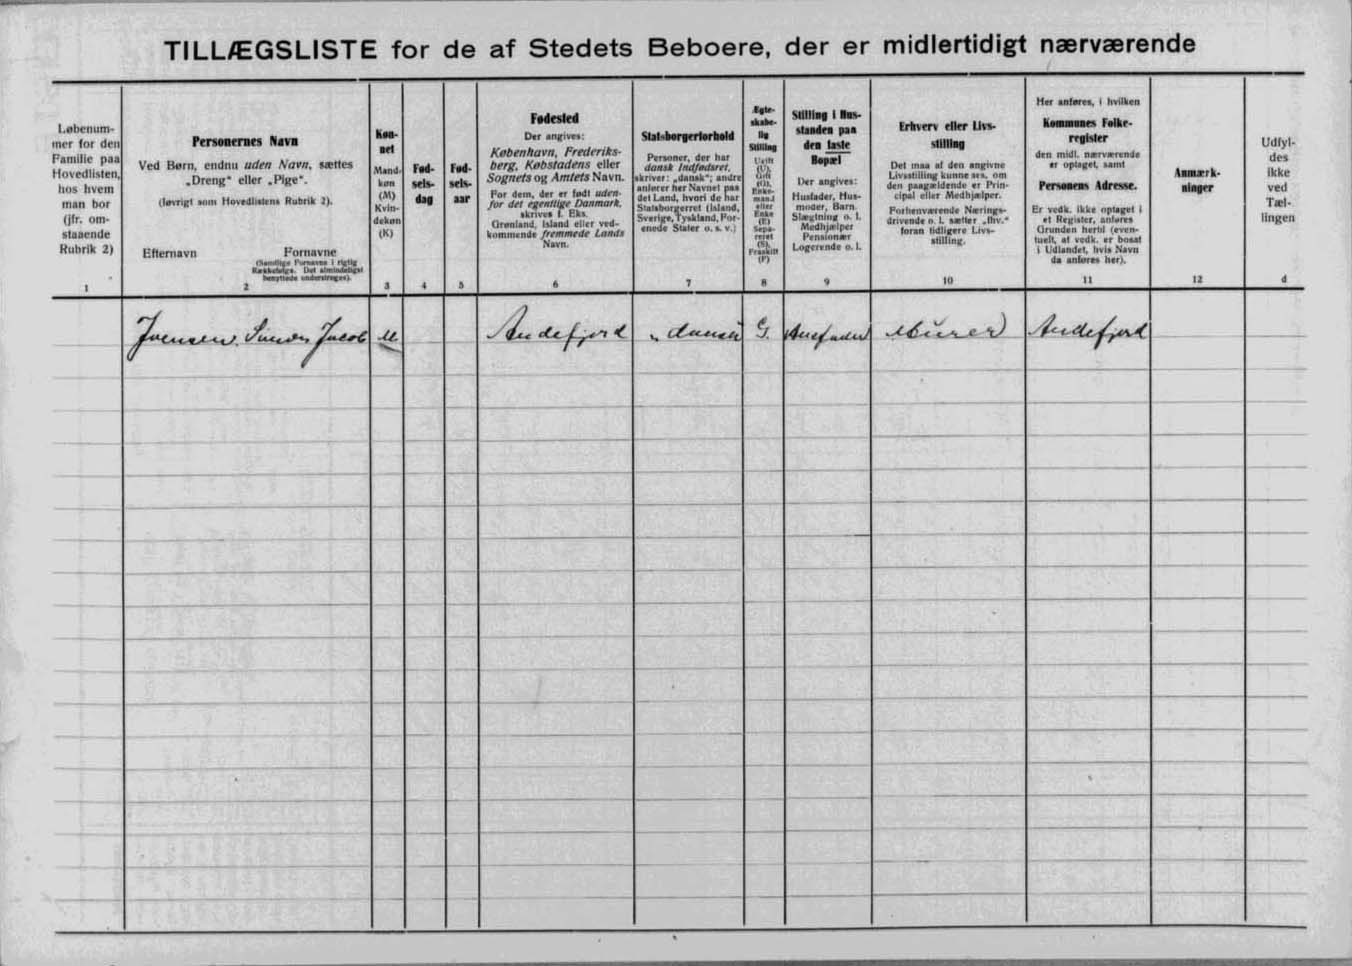 TILLÆGSLISTE for de af Stedets Beboere, der er midlertidigt nærværende
Løbenum-
mer for den
Familie paa
Hovedlisten,
hos hvem
man bor
(jfr. om-
staaende
Rubrik 2)
1
Personernes Navn
Ved Børn, endnu uden Navn, sættes
„Dreng“ eller „Pige“.
(Iøvrigt som Hovedlistens Rubrik 2).
Efternavn Fornavne
(Samtlige Fornavne i rigtig
Rækkefølge. Det almindeligst
benyttede understreges).
2
Køn-
net
Mand-
køn
(M)
Kvin-
dekøn
(K)
3
Fød-
sels-
dag
4
Fød-
sels-
aar
5
Fødested
Der angives:
København, Frederiks-
berg, Købstadens eller
Sognets og Amtets Navn.
For dem, der er født uden-
for det egentlige Danmark,
skrives f. Eks.
Grønland, Island eller ved-
kommende fremmede Lands
Navn.
6
Statsborgerforhold
Personer, der har
dansk Indfødsret,
skriver: „dansk“; andre
anfører her Navnet paa
det Land, hvori de har
Statsborgerret (Island,
Sverige, Tyskland, For-
enede Stater o. s. v.)
7
Ægte-
skabe-
lig
Stilling
Ugift
(U),
Gift
(G),
Enke-
mand
eller
Enke
(E)
Sepa-
reret
(S),
Fraskilt
(F)
8
Stilling i Hus-
standen paa
den faste
Bopæl
Der angives:
Husfader, Hus-
moder, Barn
Slægtning o. l.
Medhjælper
Pensionær
Logerende o. l.
9
Erhverv eller Livs-
stilling
Det maa af den angivne
Livsstilling kunne ses, om
den paagældende er Prin-
cipal eller Medhjælper.
Forhenværende Nærings-
drivende o. l. sætter „fhv.“
foran tidligere Livs-
stilling.
10
Her anføres, i hvilken
Kommunes Folke-
register
den midl. nærværende
er optaget, samt
Personens Adresse.
Er vedk. ikke optaget i
et Register, anføres
Grunden hertil (even-
tuelt, at vedk. er bosat
i Udlandet, hvis Navn
da anføres her).
11
Anmærk-
ninger
12
Udfyl-
des
ikke
ved
Tæl-
lingen
d
Joensen, Simon Jacob M Andefjord „ dansk G. Husfader Murer Andefjord